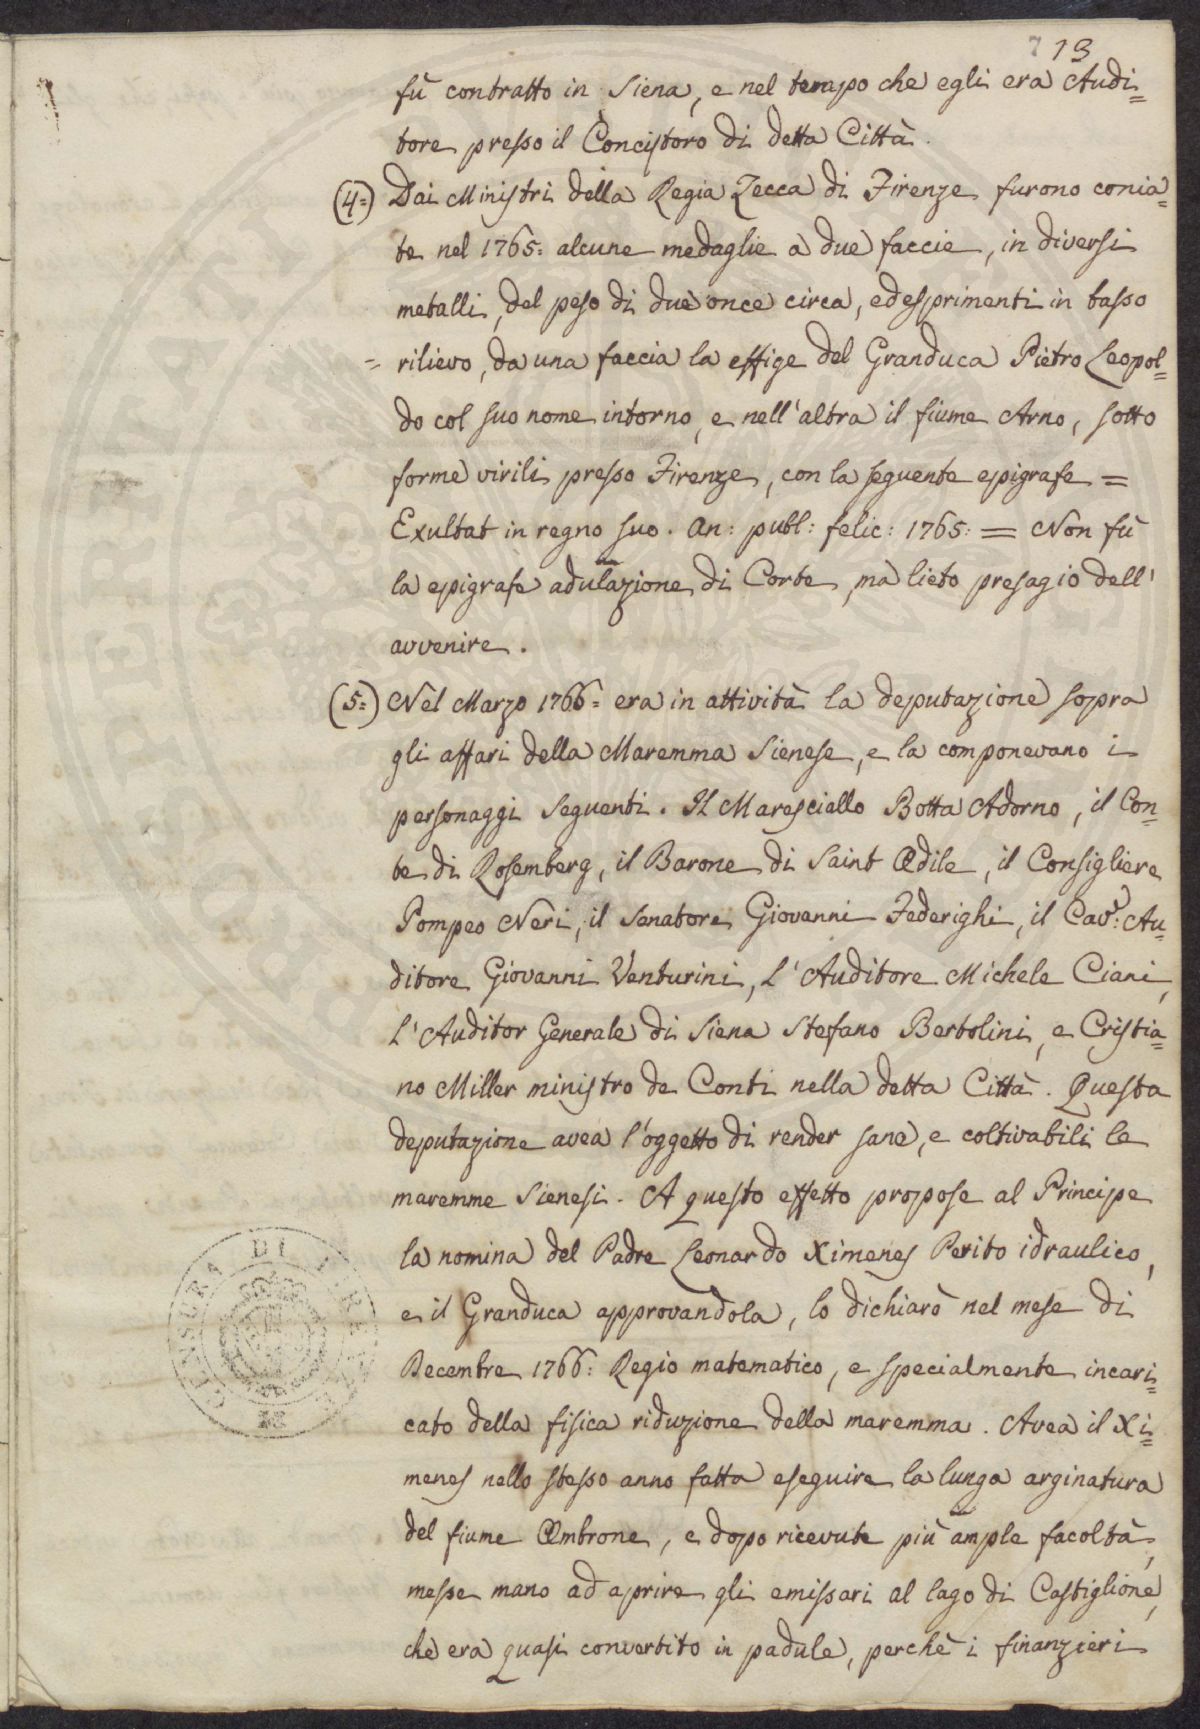 7 13
fù contratto in Siena, e nel tempo che egli era Audi=
tore presso il Concistoro di detta Città.
(4=) Dai Ministri della Regia Zecca di Firenze furono conia=
te nel 1765: alcune medaglie a due faccie, in diversi
metalli, del peso di due once circa, ed esprimenti in basso
= rilievo, da una faccia la effige del Granduca Pietro Leopol=
do col suo nome intorno, e nell'altra il fiume Arno, sotto
forme virili presso Firenze, con la seguente epigrafe =
Exultat in regno suo. An: publ: felic: 1765: = Non fù
la epigrafe adulazione di Corte, ma lieto presagio dell'
avvenire.
(5=) Nel Marzo 1766= era in attività la deputazione sopra
gli affari della Maremma Sienese, e la componevano i
personaggi seguenti. Il Maresciallo Botta Adorno, il Con=
te di Rosemberg, il Barone di Saint Odile, il Consigliere
Pompeo Neri, il Senatore Giovanni Federighi, il Cav.r: Au=
ditore Giovanni Venturini, L'Auditore Michele Ciani,
L'Auditor Generale di Siena Stefano Bertolini, e Cristia=
no Miller ministro de Conti nella detta Città. Questa
deputazione avea l'oggetto di render sane, e coltivabili le
maremme Sienesi. A questo effetto propose al Principe
la nomina del Padre Leonardo Ximenes Perito idraulico,
e il Granduca approvandola, lo dichiarò nel mese di
Decembre 1766: Regio matematico, e specialmente incari=
cato della fisica riduzione della maremma. Avea il Xi=
menes nello stesso anno fatta eseguire la lunga arginatura
del fiume Ombrone, e dopo ricevute più ample facoltà,
messe mano ad aprire gli emissari al lago di Castiglione,
che era quasi convertito in padule, perchè i finanzieri
CENSURA DI FIRENZE